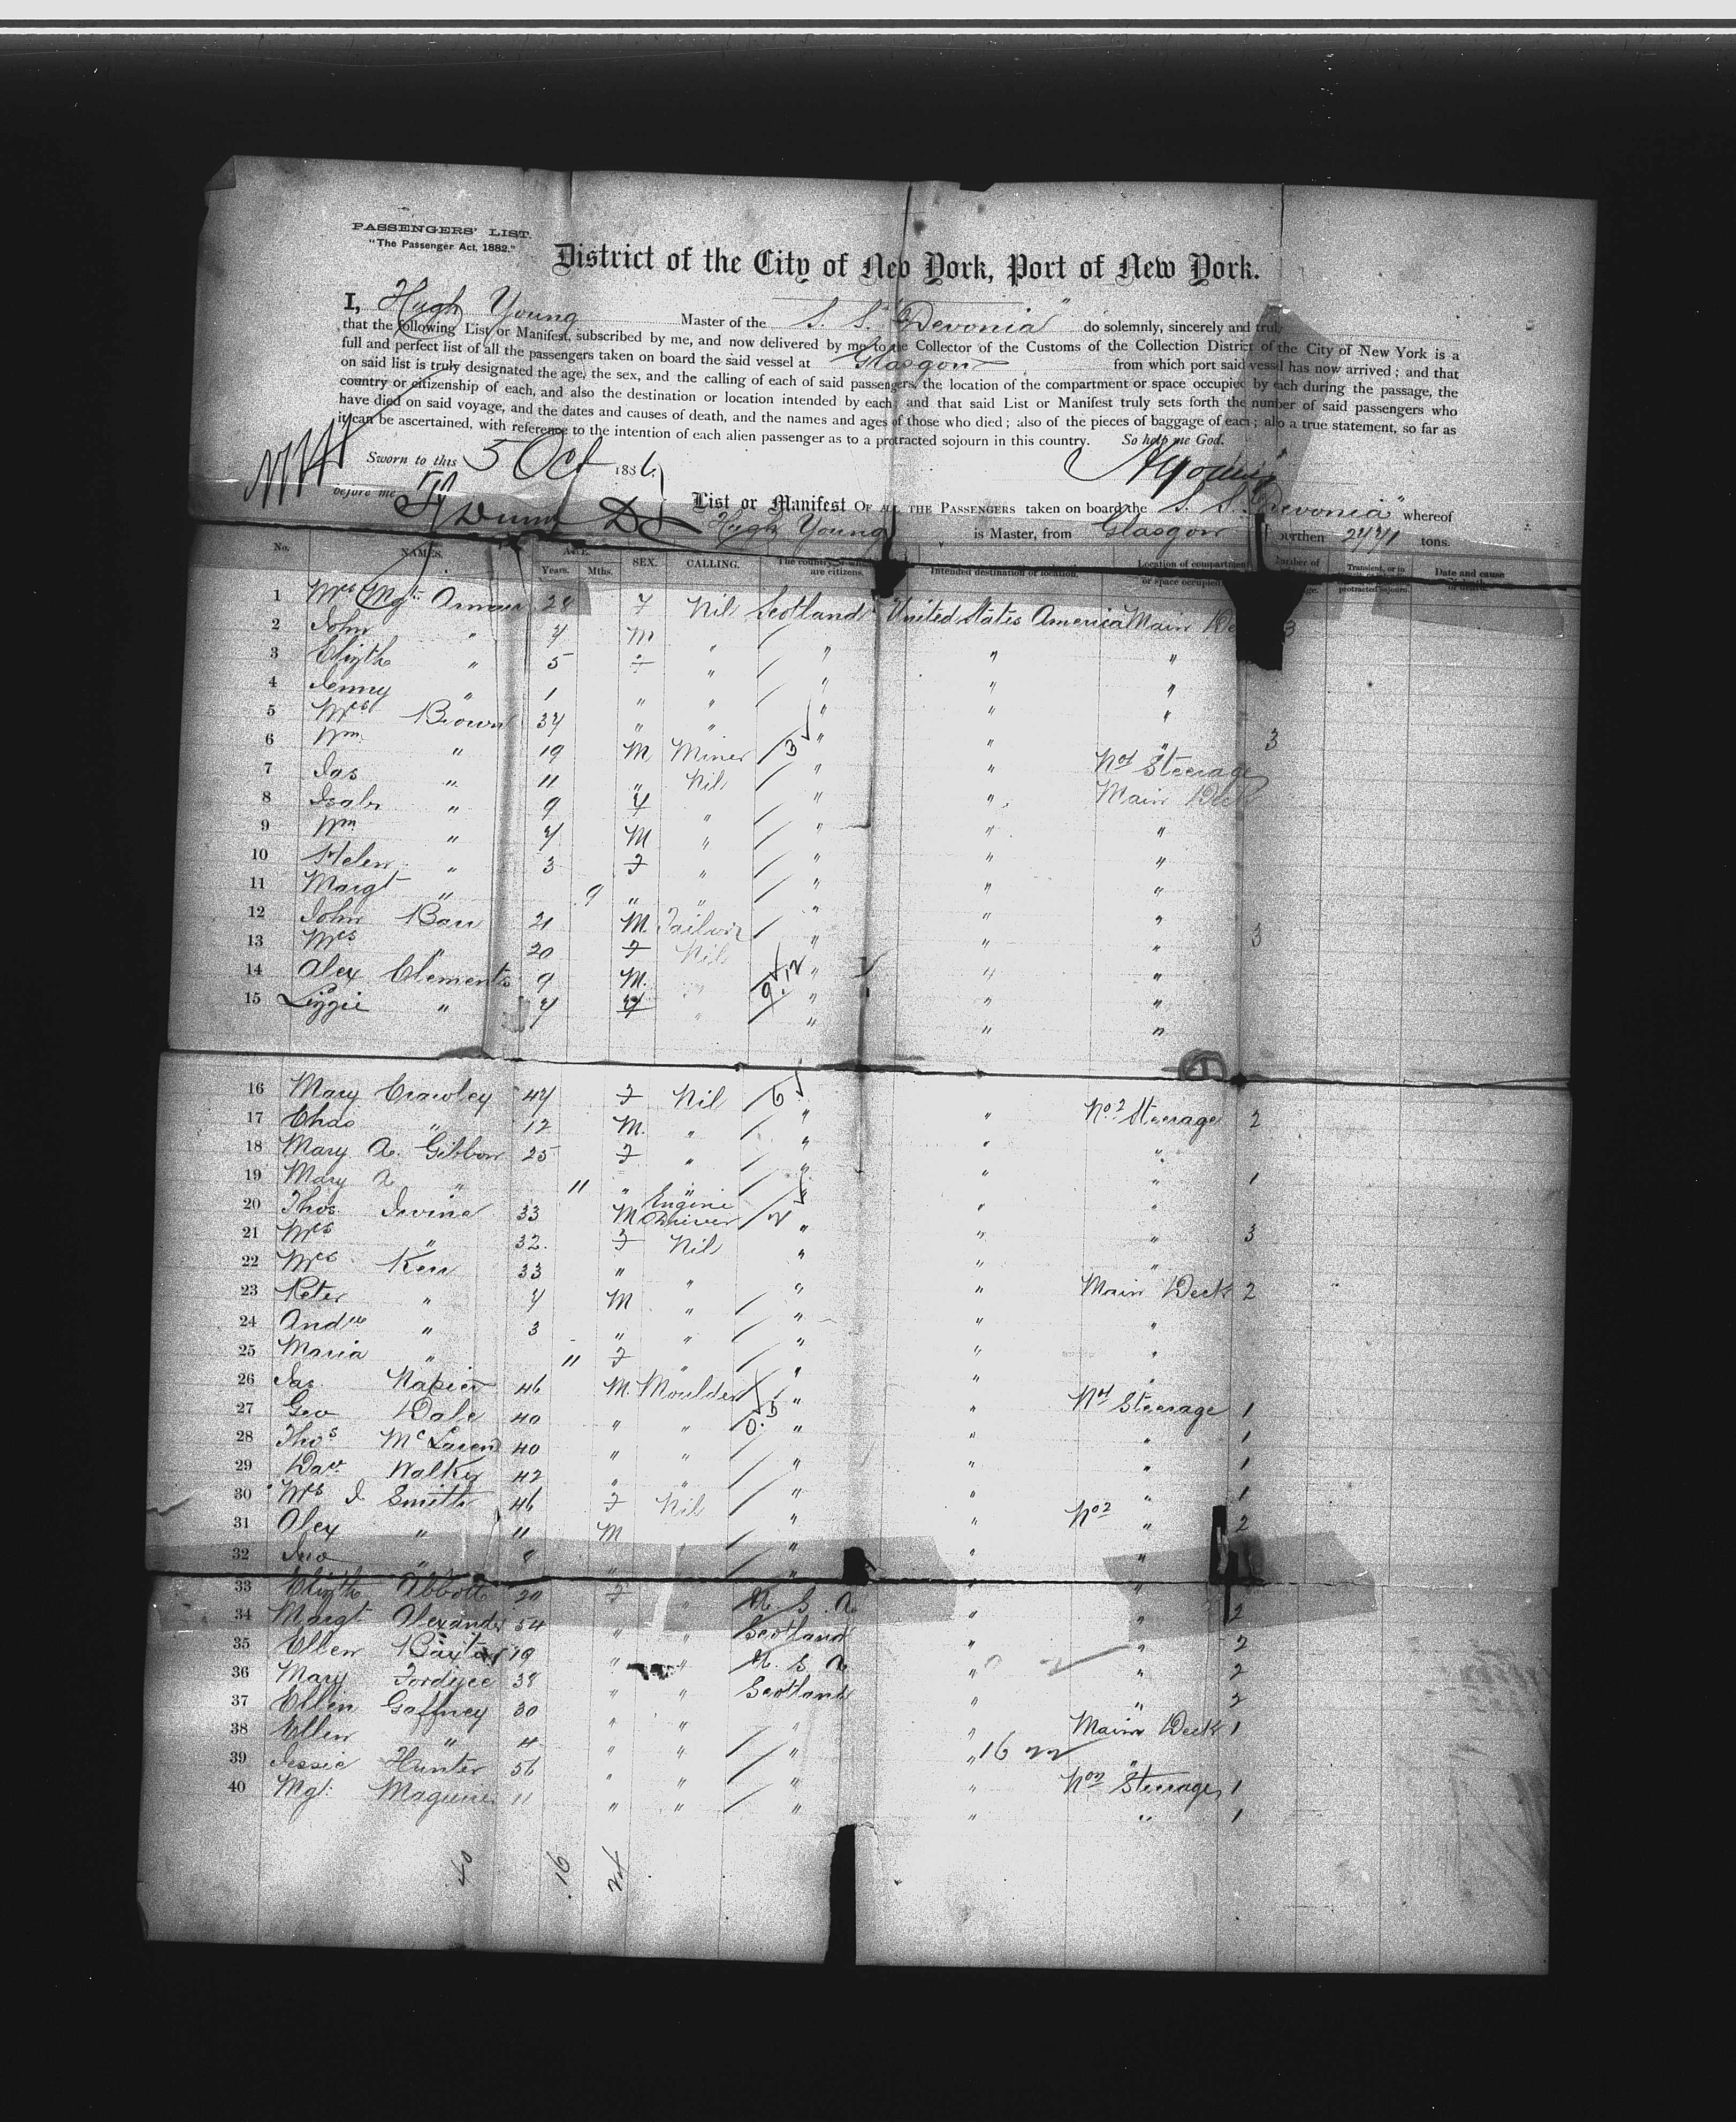 PASSENGERS' LIST.
"The Passenger Act, 1882."
District of the City of New York, Port of New York.
I, Hugh Young Master of the S. S. "Devonia" do solemnly, sincerely and truly
that the following List or Manifest, subscribed by me, and now delivered by me to the Collector of the Customs of the Collection District of the City of New York is a
full and perfect list of all the passengers taken on board the said vessel at Glasgow from which port said vessel has now arrived; and that
on said list is truly designated the age, the sex, and the calling of each of said passengers, the location of the compartment or space occupied by each during the passage, the
country or citizenship of each, and also the destination or location intended by each; and that said List or Manifest truly sets forth the number of said passengers who
have died on said voyage, and the dates and causes of death, and the names and ages of those who died; also of the pieces of baggage of each; also a true statement, so far as
it can be ascertained, with reference to the intention of each alien passenger as to a protracted sojourn in this country. So help me God.
Sworn to this 5 Oct 1886 HYoung
before me
List or Manifest OF ALL THE PASSENGERS taken on board the S. S. "Devonia" whereof
Hugh Young is Master, from Glasgow burthen tons.
No. NAMES. AGE. Years. Mths. SEX. CALLING. The country of which are citizens. Intended destination or location. Location of compartment or space occupied. Number of Transient, or in protracted sojourn. Date and cause of death.
1 Mrs Mgt 28 F Nil Scotland United States America Main De 3
2 John " 7 M " " " "
3 Elizth " 5 F " " " "
4 Jenny " 1 " " " " "
5 Mrs Brown 37 " " " " " 3
6 Wm " 19 M Miner 3 " " No1 Steerage
7 Jas " 11 " Nil " " Main Deck
8 Isab " 9 F " " " "
9 Wm " 7 M " " " "
10 Helen " 3 F " " " "
11 Margt " 9 " " " " "
12 John Barr 21 M Tailor " " " 3
13 Mrs " 20 F Nil " " "
14 Alex Clements 9 M. " 9.12 " " "
15 Lizzie " 7 F " " " "
16 Mary Crawley 47 F Nil 6 " " No 2 Steerage 2
17 Chas " 12 M. " " " "
18 Mary A. Gibbon 25 F " " " " 1
19 Mary A " 11 " " " " "
20 Thos. Irvine 33 M Engine Driver 2 " " " 3
21 Mrs " 32. F Nil " " "
22 Mrs Kerr 33 " " " " Main Deck 2
23 Peter " 7 M " " " "
24 Andw " 3 " " " " "
25 Maria " 11 F " " " "
26 Jas. Napier 46 M. Moulder " " No1 Steerage 1
27 Geo Dale 40 " " " " " 1
28 Thos McLaren 40 " " " " " 1
29 Davd Walker 42 " " " " " 1
30 Mrs J Smith 46 F Nil " " No2 " 2
31 Alex " 11 M " " "
32 Jno " 8 " " " "
33 Elizth Abbott 20 F " U. S. A " " 2
34 Margt Alexander 54 " " Scotland " " 2
35 Ellen Baxter 19 " " U. S. A " " 2
36 Mary 38 " " Scotland " " 2
37 Ellen Gaffney 30 " " " " Main Deck 1
38 Ellen " 4 " " " " 16 22 "
39 Jessie Hunter 56 " " " " Steerage 1
40 Mgt. Maguire 11 " " " " " 1
40 16 24